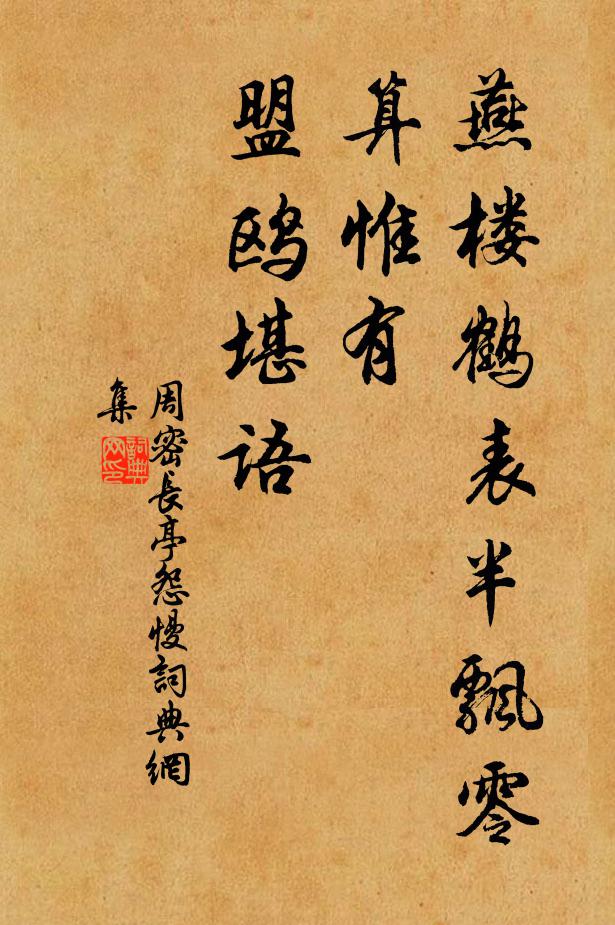 燕楼鹤表半飘零
算惟有
盟鸥堪语
周密長亭怨慢詞典網
集
詞典
网印